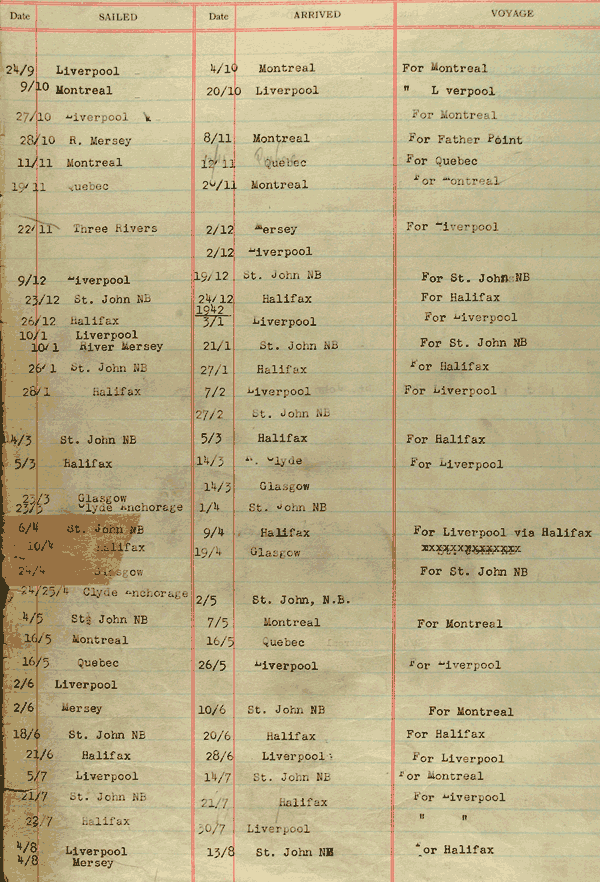 Date SAILED Date ARRIVED VOYAGE
24/9 Liverpool 4/10 Montreal For Montreal
9/10 Montreal 20/10 Liverpool " L verpool
27/10 iverpool For Montreal
28/10 R. Mersey 8/11 Montreal For Father Point
11/11 Montreal 12/11 Quebec For Quebec
19/11 uebec 20/11 Montreal For Montreal
22/11 Three Rivers 2/12 Mersey For Liverpool
2/12 Liverpool
9/12 Liverpool 19/12 St. John NB For St. John NB
23/12 St. John NB 24/12 Halifax For Halifax
1942
26/12 Halifax 3/1 Liverpool For Liverpool
10/1 Liverpool
10/1 River Mersey 21/1 St. John NB For St. John NB
26/1 St. John NB 27/1 Halifax For Halifax
28/1 Halifax 7/2 Liverpool For Liverpool
27/2 St. John NB
4/3 St. John NB 5/3 Halifax For Halifax
5/3 Halifax 14/3 R. Clyde For Liverpool
14/3 Glasgow
23/3 Glasgow
23/3 Clyde Anchorage 1/4 St. John NB
6/4 St. John NB 9/4 Halifax For Liverpool via Halifax
10/4 Halifax 19/4 Glasgow xxxxxxxxxxxxxx
24/4 Glasgow For St. John NB
24/25/4 Clyde Anchorage 2/5 St. John, N.B.
4/5 St. John NB 7/5 Montreal For Montreal
16/5 Montreal 16/5 Quebec
16/5 Quebec 26/5 Liverpool For Liverpool
2/6 Liverpool
2/6 Mersey 10/6 St. John NB For Montreal
18/6 St. John NB 20/6 Halifax For Halifax
21/6 Halifax 28/6 Liverpool For Liverpool
5/7 Liverpool 14/7 St. John NB For Montreal
21/7 St. John NB 21/7 Halifax For Liverpool
22/7 Halifax 30/7 Liverpool " "
4/8 Liverpool 13/8 St. John NB For Halifax
4/8 Mersey